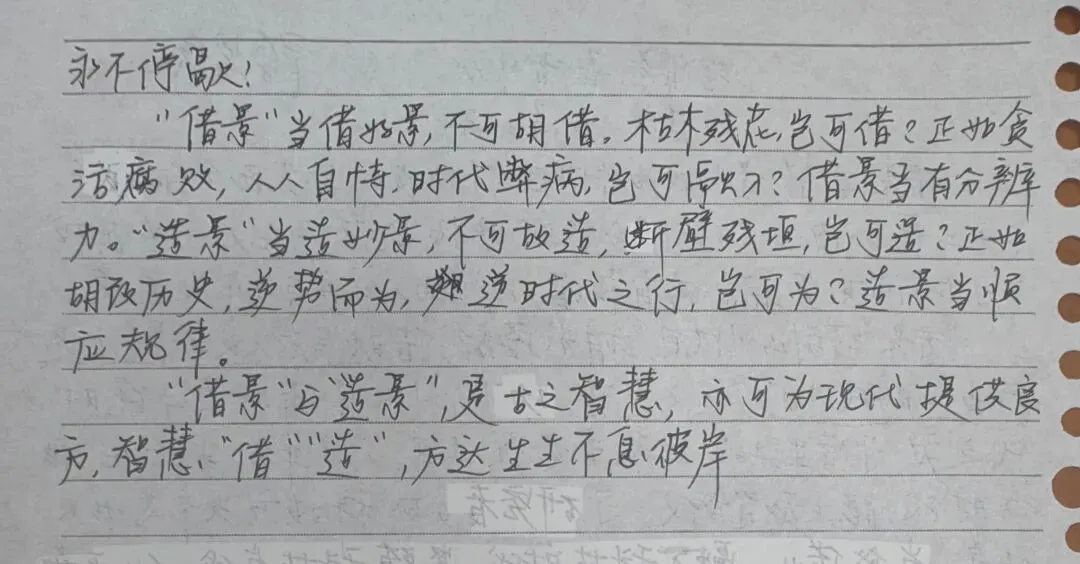 永不停歇！
"借景"当借好景，不可胡借。枯木残花，岂可借？正如贪
污腐败，人人自恃，时代弊病，岂可融入？借景当有分辨
力。"造景"当造妙景，不可故造，断壁残垣，岂可造？正如
胡改历史，逆势而为，逆时代之行，岂可为？造景当顺
应规律。
"借景"与"造景"，是古之智慧，亦可为现代提供良
方，智慧、"借""造"，方达生生不息彼岸